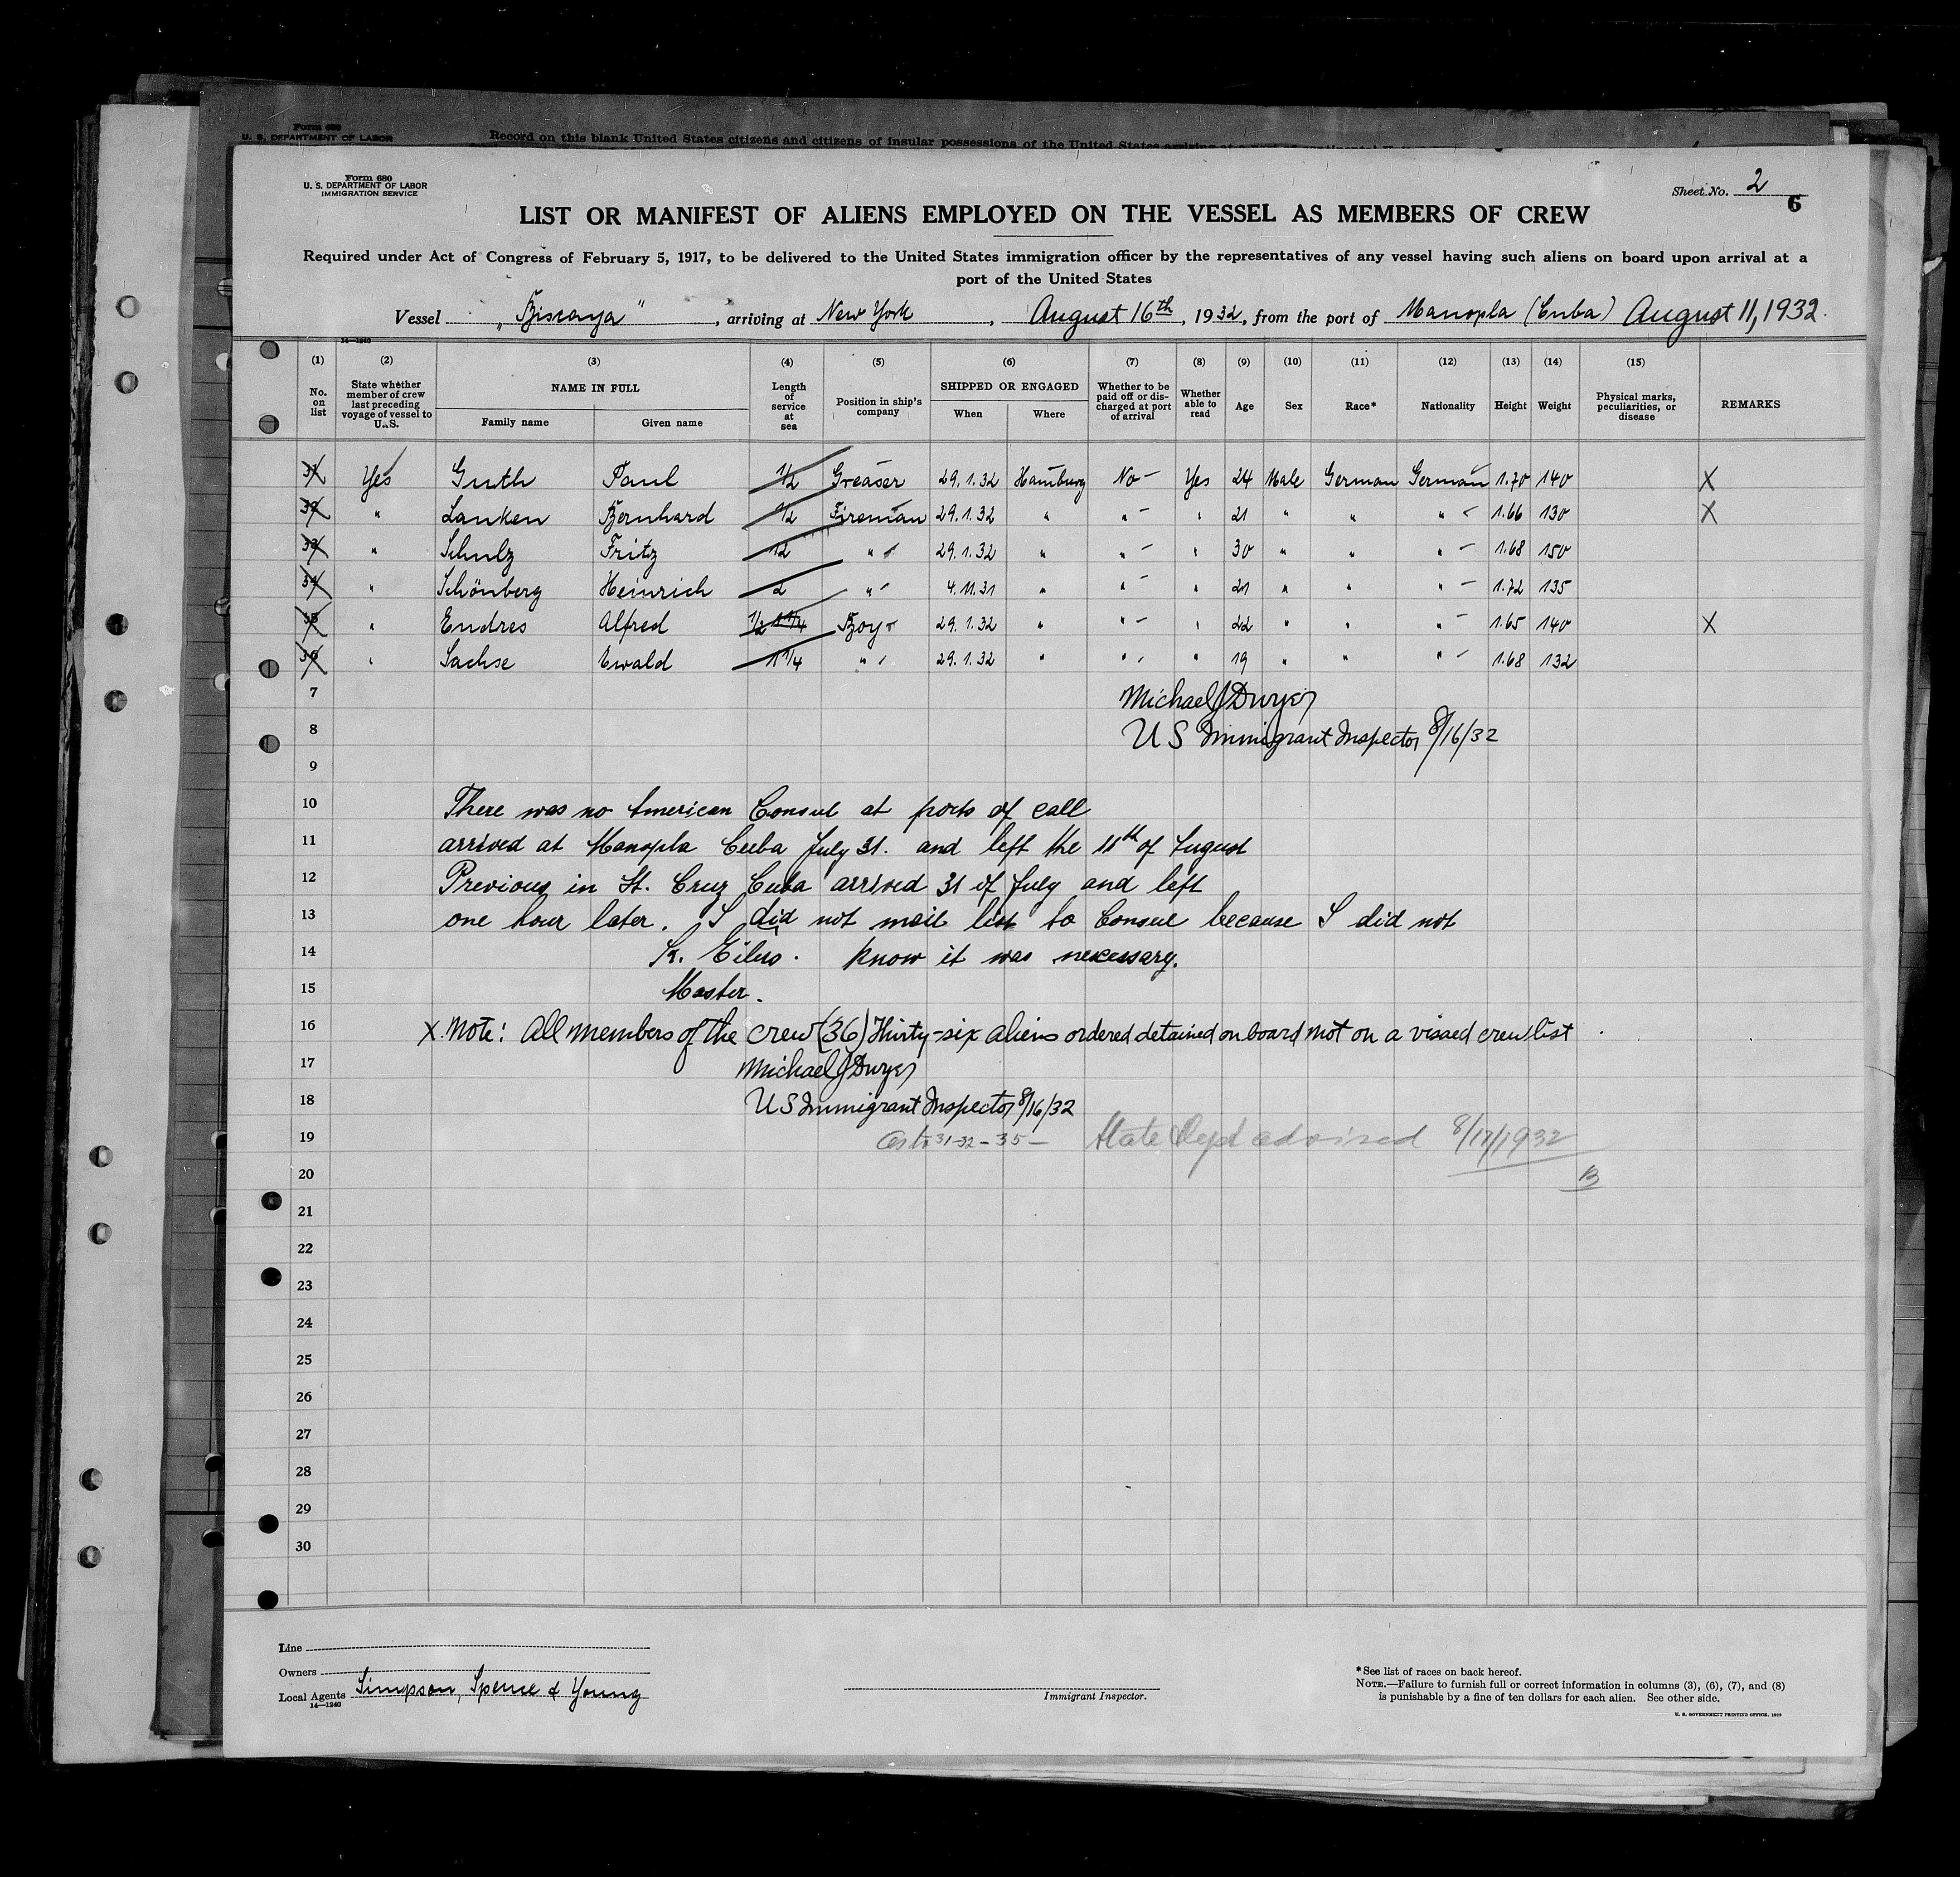 Form 680
U. S. DEPARTMENT OF LABOR
Record on this blank United States citizens and citizens of insular possessions of the United States arriving at a port of
Form 680
U. S. DEPARTMENT OF LABOR
IMMIGRATION SERVICE
Sheet No. 2
6
LIST OR MANIFEST OF ALIENS EMPLOYED ON THE VESSEL AS MEMBERS OF CREW
Required under Act of Congress of February 5, 1917, to be delivered to the United States immigration officer by the representatives of any vessel having such aliens on board upon arrival at a
port of the United States
Vessel „Biscaya", arriving at New York, August 16th, 1932, from the port of Manopla (Cuba) August 11, 1932.
14—1240
(1) (2) (3) (4) (5) (6) (7) (8) (9) (10) (11) (12) (13) (14) (15)
No. on list
State whether member of crew last preceding voyage of vessel to U. S.
NAME IN FULL
Family name
Given name
Length of service at sea
Position in ship's company
SHIPPED OR ENGAGED
When
Where
Whether to be paid off or discharged at port of arrival
Whether able to read
Age
Sex
Race*
Nationality
Height
Weight
Physical marks, peculiarities, or disease
REMARKS
31 Yes Guth Paul 1/2 Greaser 29.1.32 Hamburg No — Yes 24 Male German German 1.70 140 X
32 " Lanken Bernhard 1/2 Fireman 29.1.32 " " — " 21 " " " 1.66 130 X
33 " Schulz Fritz 12 " 29.1.32 " " — " 30 " " " — 1.68 150
34 " Schönberg Heinrich 2 " 4.11.31 " " — " 21 " " " — 1.72 135
35 " Endres Alfred 1/2 1 1/4 Boy 29.1.32 " " — " 22 " " " — 1.65 140 X
36 " Sachse Ewald 1 1/4 " 29.1.32 " " " 19 " " " — 1.68 132
7 Michael J Dwyer
8 US Immigrant Inspector 8/16/32
9
10 There was no American Consul at ports of call
11 arrived at Manopla Cuba July 31. and left the 11th of August
12 Previous in St. Cruz Cuba arrived 31 of July and left
13 one hour later. I did not mail list to Consul because I did not
14 K. Eilus. know it was necessary.
15 Master.
16 X Note: All members of the crew (36) Thirty-six aliens ordered detained on board not on a visaed crew list
17 Michael J Dwyer
18 US Immigrant Inspector 8/16/32
19 As to 31-32-35— State Dept advised 8/17/1932
20 B
21
22
23
24
25
26
27
28
29
30
Line
Owners
Local Agents Simpson, Spence & Young
14—1240
Immigrant Inspector.
*See list of races on back hereof.
NOTE.—Failure to furnish full or correct information in columns (3), (6), (7), and (8)
is punishable by a fine of ten dollars for each alien. See other side.
U. S. GOVERNMENT PRINTING OFFICE.